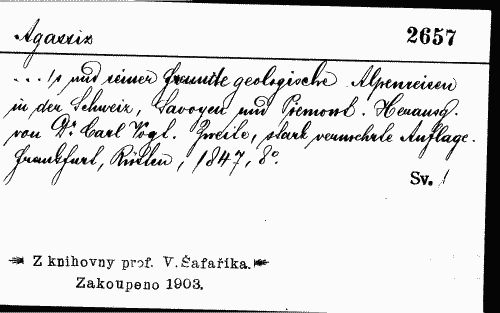 Agassiz
2657
... 's und seiner Freunde geologische Alpenreisen
in der Schweiz, Savoyen und Piemont. Herausg.
von Dr. Carl Vogt. Zweite, stark vermehrte Auflage.
Frankfurt, Rütten, 1847, 8°.
Sv. 1
Z knihovny prof. V. Šafaříka.
Zakoupeno 1903.